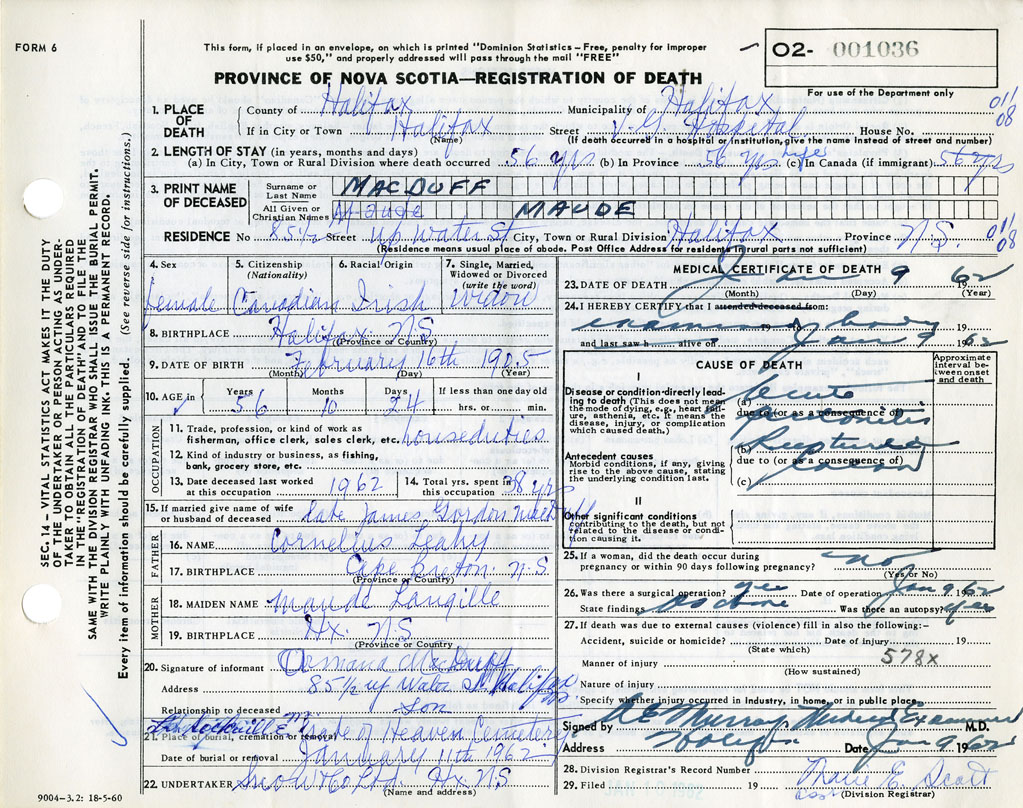 FORM 6
This form, if placed in an envelope, on which is printed "Dominion Statistics – Free, penalty for improper
use $50," and properly addressed will pass through the mail "FREE"
02- 001036
For use of the Department only
PROVINCE OF NOVA SCOTIA—REGISTRATION OF DEATH
SEC. 14 – VITAL STATISTICS ACT MAKES IT THE DUTY
OF THE UNDERTAKER OR PERSON ACTING AS UNDER-
TAKER TO OBTAIN ALL THE PARTICULARS REQUIRED
IN THE "REGISTRATION OF DEATH" AND TO FILE THE
SAME WITH THE DIVISION REGISTRAR WHO SHALL ISSUE THE BURIAL PERMIT.
WRITE PLAINLY WITH UNFADING INK. THIS IS A PERMANENT RECORD.
Every item of information should be carefully supplied. (See reverse side for instructions.)
1. PLACE OF DEATH County of Halifax Municipality of Halifax 011
If in City or Town Halifax Street V.G. Hospital House No. 08
(Name) (If death occurred in a hospital or institution, give the name instead of street and number)
2. LENGTH OF STAY (in years, months and days)
(a) In City, Town or Rural Division where death occurred 56 yrs (b) In Province 56 yrs life (c) In Canada (if immigrant) 56 yrs
3. PRINT NAME OF DECEASED Surname or Last Name MACDUFF
All Given or Christian Names Maude MAUDE
RESIDENCE No 85½ Street up water St City, Town or Rural Division Halifax Province N.S. 011 08
(Residence means usual place of abode. Post Office Address for residents in rural parts not sufficient)
4. Sex 5. Citizenship (Nationality) 6. Racial Origin 7. Single, Married, Widowed or Divorced (write the word)
female Canadian Irish widow
8. BIRTHPLACE Halifax N.S
(Province or Country)
9. DATE OF BIRTH February 16th 1905
(Month) (Day) (Year)
10. AGE in Years Months Days If less than one day old
56 10 24 hrs. or min.
OCCUPATION
11. Trade, profession, or kind of work as
fisherman, office clerk, sales clerk, etc. houseduties
12. Kind of industry or business, as fishing,
bank, grocery store, etc.
13. Date deceased last worked at this occupation 1962 14. Total yrs. spent in this occupation 38 yrs
15. If married give name of wife
or husband of deceased late James Gordon
FATHER
16. NAME Cornelius Leahy
17. BIRTHPLACE Cape Breton N.S.
(Province or Country)
MOTHER
18. MAIDEN NAME Maude Langille
19. BIRTHPLACE Hx. N.S
(Province or Country)
20. Signature of informant MacDuff
Address 85½ up Water St. Halifax
Relationship to deceased Son
21. Place of burial, cremation or removal Gate of Heaven Cemetery
Date of burial or removal January 11th 1962
22. UNDERTAKER Snow & Co Ltd. Hx. N.S
(Name and address)
9004-3.2: 18-5-60
MEDICAL CERTIFICATE OF DEATH
23. DATE OF DEATH Jan 9 1962
(Month) (Day) (Year)
24. I HEREBY CERTIFY that I attended deceased from:
examined body 19
and last saw h alive on Jan 9 1962
CAUSE OF DEATH
Approximate interval between onset and death
I
Disease or condition directly lead-
ing to death (This does not mean
the mode of dying, e.g., heart failure,
asthenia, etc. It means the
disease, injury, or complication
which caused death.)
(a) acute peritonitis
due to (or as a consequence of)
Antecedent causes
Morbid conditions, if any, giving
rise to the above cause, stating
the underlying condition last.
(b) Ruptured
due to (or as a consequence of)
(c)
II
Other significant conditions
contributing to the death, but not
related to the disease or condi-
tion causing it.
25. If a woman, did the death occur during
pregnancy or within 90 days following pregnancy? no
(Yes or No)
26. Was there a surgical operation? yes Date of operation Jan 9 1962
State findings as above Was there an autopsy? yes
27. If death was due to external causes (violence) fill in also the following:–
Accident, suicide or homicide? Date of injury 19
(State which)
Manner of injury 578x
(How sustained)
Nature of injury
Specify whether injury occurred in industry, in home, or in public place
Signed by Murray Medical Examiner M.D.
Address Halifax Date Jan 9 1962
28. Division Registrar's Record Number
29. Filed JAN 1962 19 Marie E. Scott
(Division Registrar)